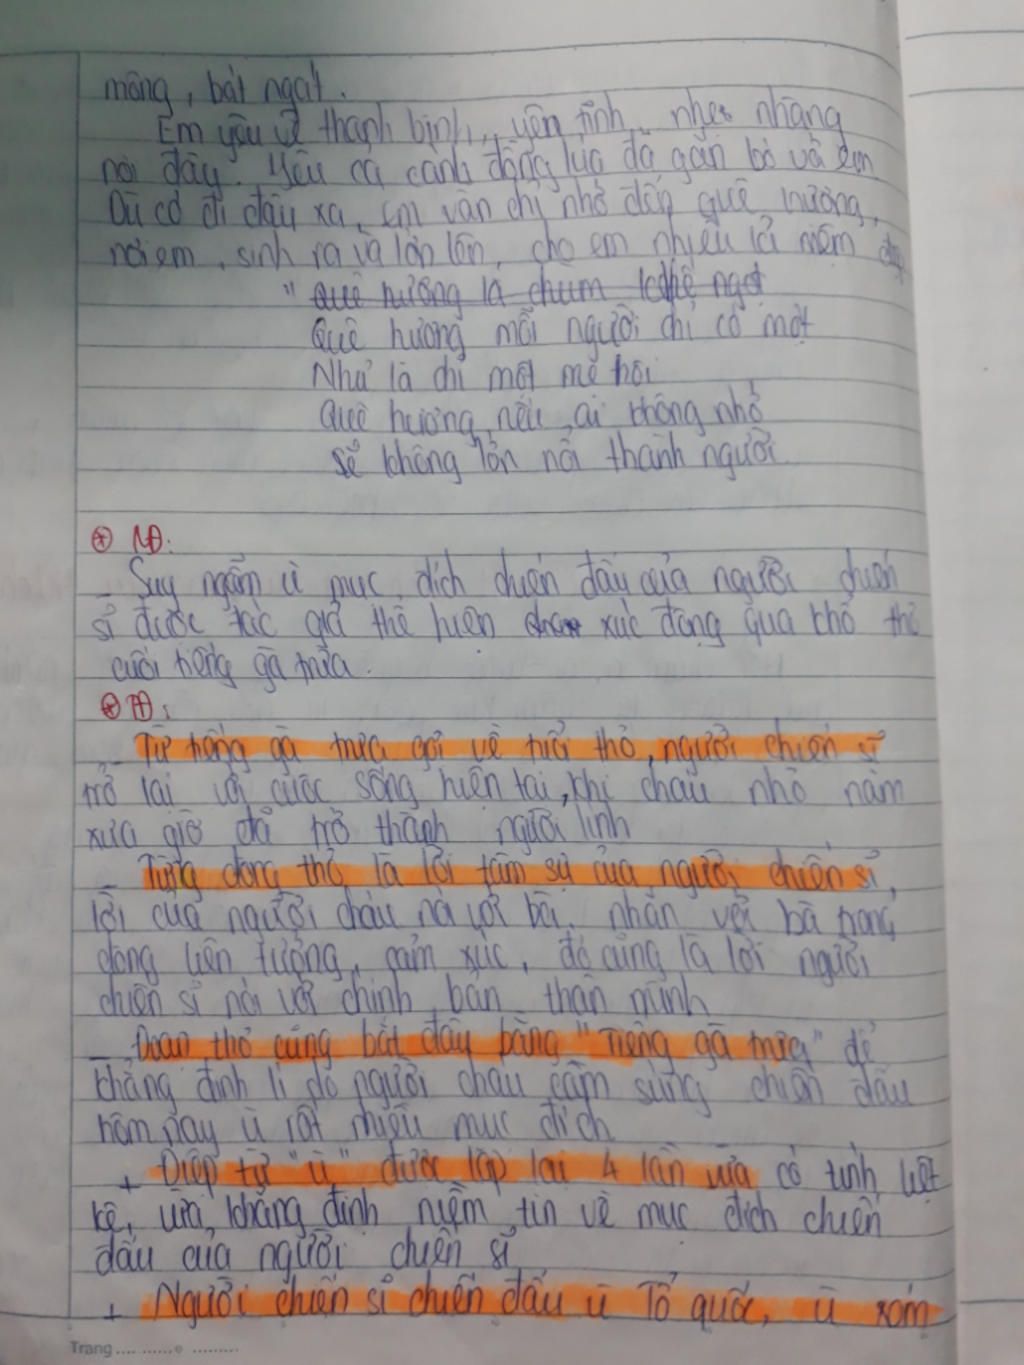 mông, bát ngát.
Em yêu vẻ thanh bình, yên tĩnh, nhẹ nhàng
nơi đây. Yêu cả cánh đồng lúa đã gắn bó với em
Dù có đi đâu xa, em vẫn chỉ nhớ đến quê hương,
nơi em sinh ra và lớn lên, cho em nhiều kỉ niệm đẹp
" Quê hương là chùm khế ngọt
Quê hương mỗi người chỉ có một
Như là chỉ một mẹ thôi
Quê hương nếu ai không nhớ
Sẽ không lớn nổi thành người.
NĐ:
_ Suy ngẫm vì mục đích chiến đấu của người chiến
sĩ được tác giả thể hiện xúc động qua khổ thơ
cuối tiếng gà trưa.
_ Từ tiếng gà trưa gọi về tuổi thơ, người chiến sĩ
trở lại với cuộc sống hiện tại, khi cháu nhỏ năm
xưa giờ đã trở thành người lính
_ Từng dòng thơ là lời tâm sự của người chiến sĩ,
lời của người cháu nói với bà, nhắn với bà trong
dòng liên tưởng, cảm xúc, đó cũng là lời người
chiến sĩ nói với chính bản thân mình
_ Đoạn thơ cũng bắt đầu bằng "Tiếng gà trưa" để
khẳng định lí do người cháu cầm súng chiến đấu
hôm nay vì rất nhiều mục đích
+ Điệp từ "vì" được lặp lại 4 lần vừa có tính liệt
kê, vừa khẳng định niềm tin về mục đích chiến
đấu của người chiến sĩ
+ Người chiến sĩ chiến đấu vì Tổ quốc, vì xóm
Trang